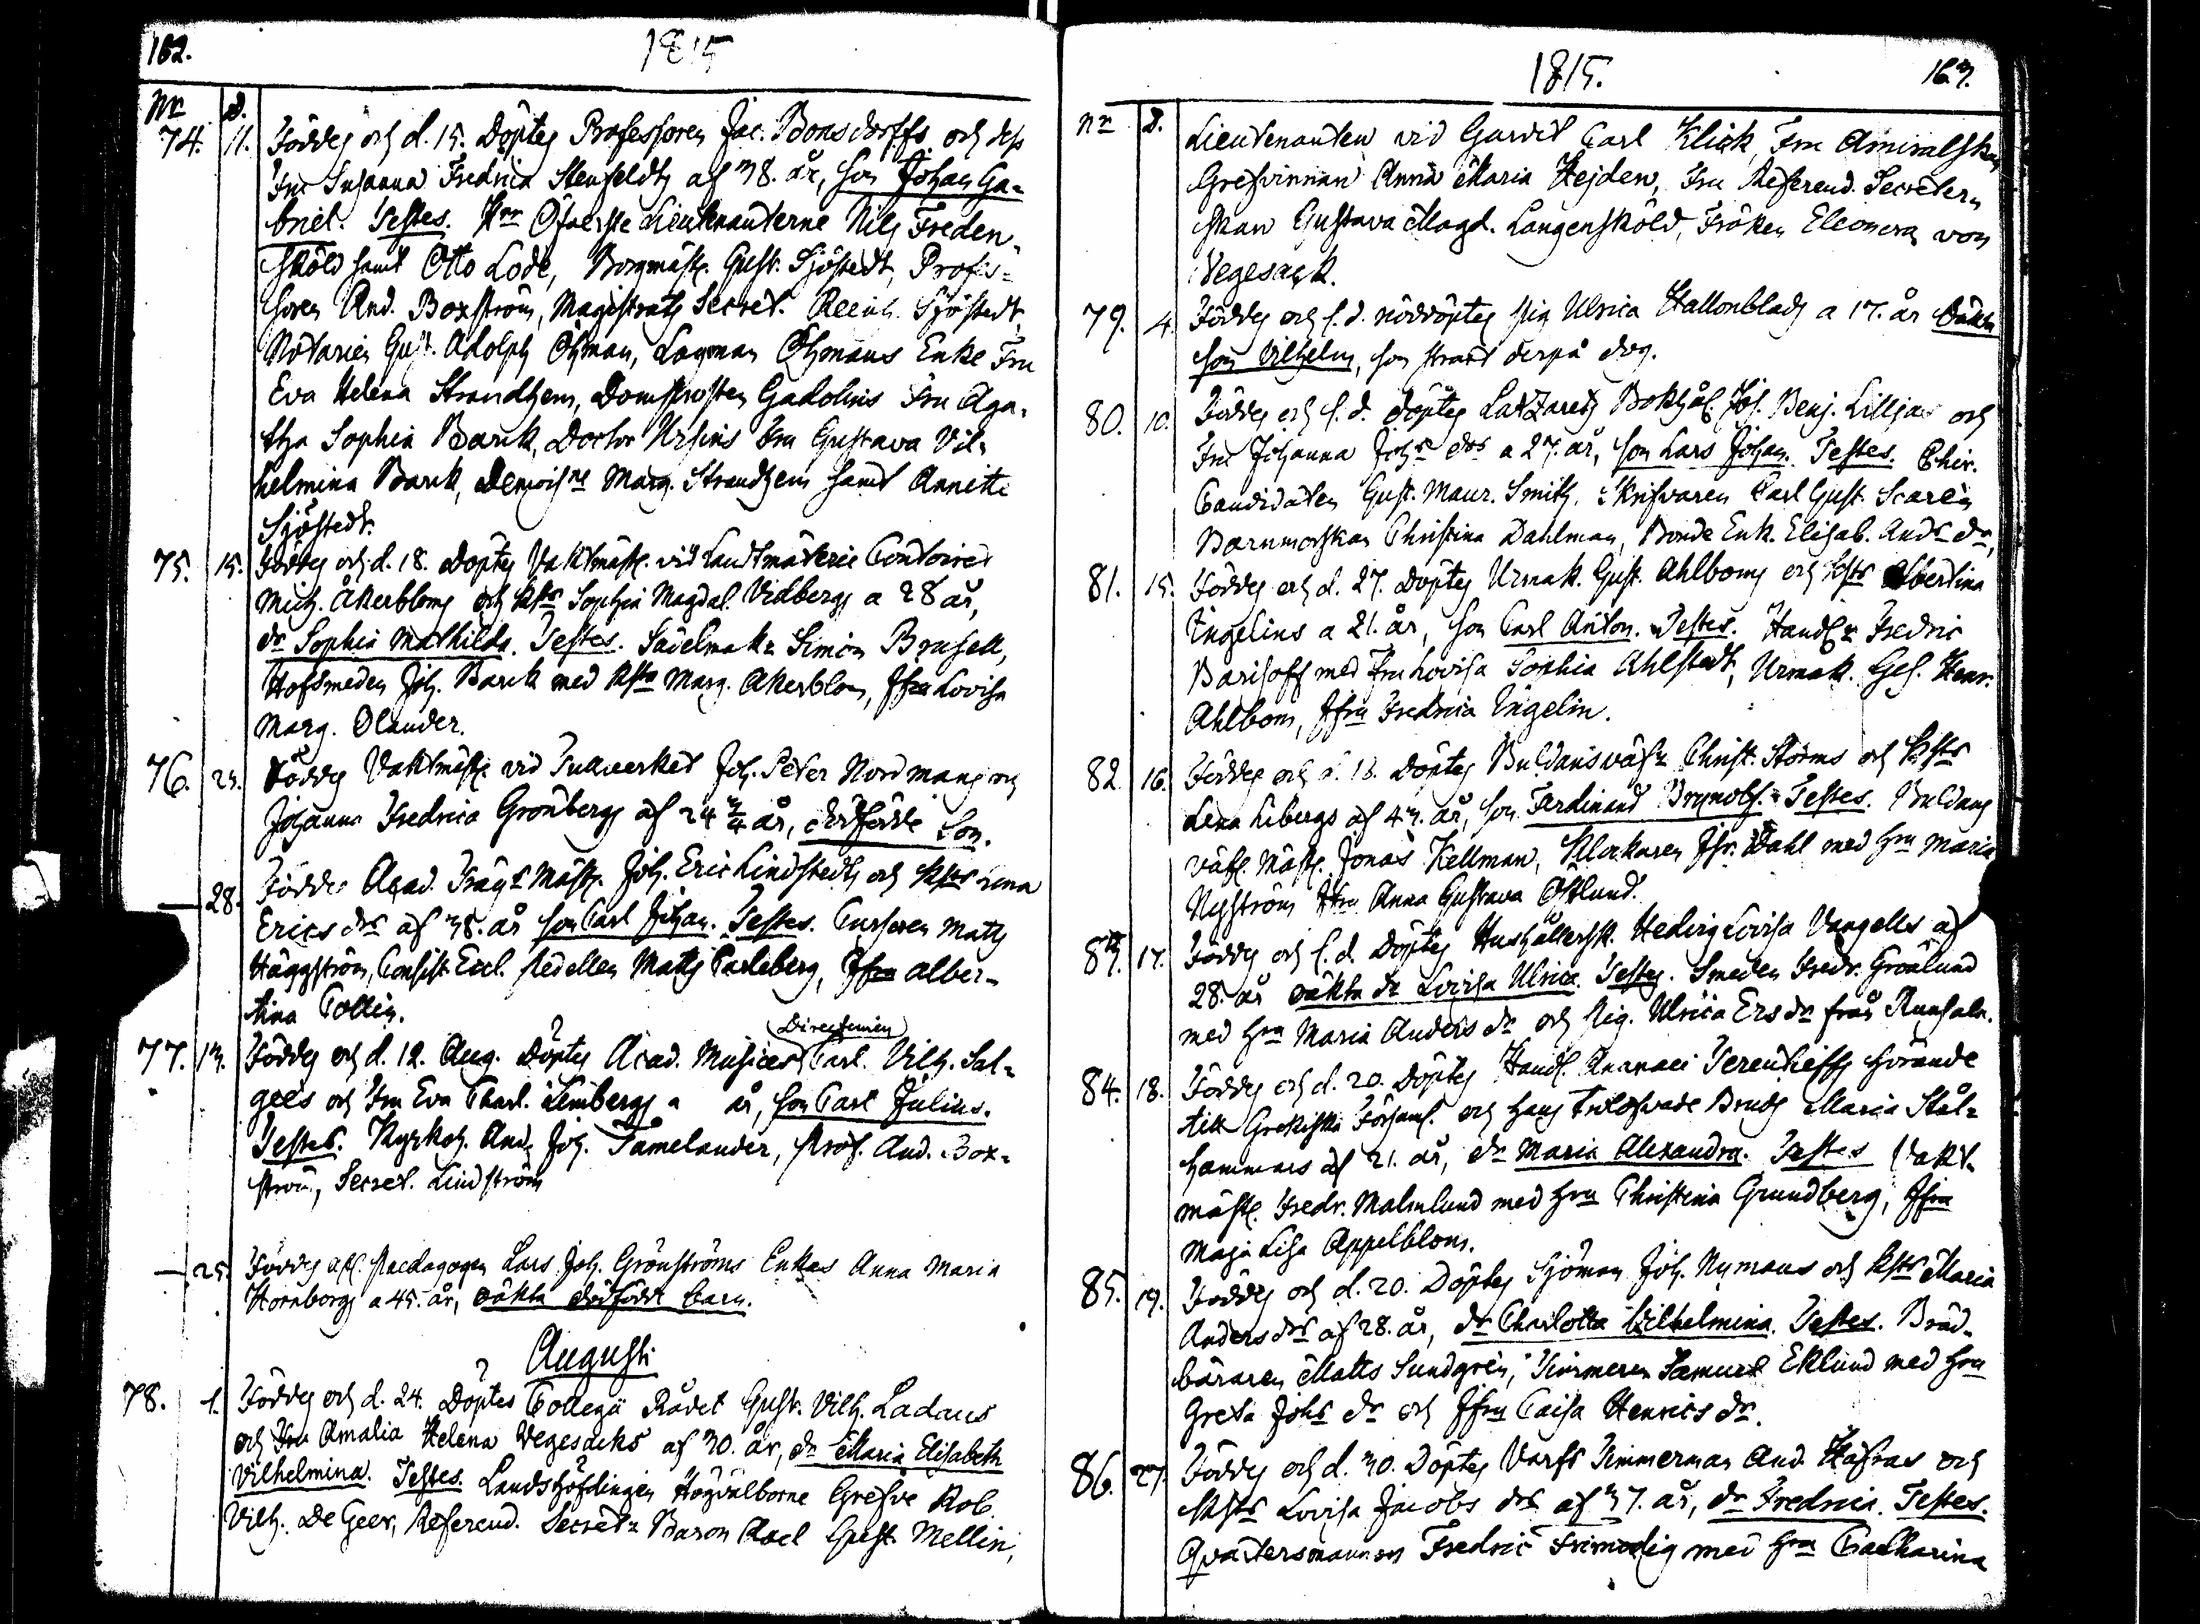 162.
1815
Nr D.
74. 11. Föddes och d. 15. Döptes Professoren Jac. Bonsdorffs och dess
Fru Susanna Fredrica Stenfeldts af 38. år, son Johan Ga-
briel. Testes. Hrr Öfverste Lieutenanterne Nils Freden-
sköld samt Otto Lode, Borgmäst. Gust. Sjöstedt, Profes-
soren And. Boxström, Magistrats Secret. Reeinh. Sjöstedt,
Notarien Gust. Adolph Öhman, Lagman Öhmans Enke Fru
Eva Helena Strandhem, Domprosten Gadolins Fru Aga-
tha Sophia Barck, Doctor Ursins Fru Gustava Vil-
helmina Barck, Demois:ne Marg. Strandhem samt Annette
Sjöstedt.
75. 15. Föddes och d. 18. Döptes Vaktmäst. vid Landtmäterie Contoiret
Mich. Åkerbloms och Hstr Sophia Magdal. Vidbergs a 28 år,
dr Sophia Mathilda. Testes. Sadelmak:r Simon Brusell,
Hofsmeden Joh. Barck med Hstru Marg. Åkerblom, Jfru Lovisa
Marg. Olander.
76. 23. Föddes Vaktmäst. vid Tullverket Joh. Peter Nordmans och
Johanna Fredrica Grönbergs af 24 3/4 år, dödfödde Son.
— 28. Föddes Acad. Träg:s Mäst. Joh. Eric Lindstedts och Hstrs Lena
Erics drs af 38. år son Carl Johan. Testes. Cursoren Matts
Häggström, Consist Eccl. Pedellen Matts Carleberg, Jfru Alber-
tina Collin.
77. 13. Föddes och d. 12. Aug. Döptes Acad. Musices Directeuren Carl Vilh. Sal-
gees och Fru Eva Charl. Lembergs a år, son Carl Julius.
Testes. Kyrkoh. And. Joh. Tämelander, Prof. And. Box-
ström, Secret. Lindström
— 25. Föddes afl. Paedagogen Lars Joh. Grönströms Enkas Anna Maria
Hornborgs a 45. år, oäkta dödfödt barn.
Augusti
78. 1. Föddes och d. 24. Döptes Collegii Rådet Gust. Vilh. Ladaus
och Fru Amalia Helena Vegesacks af 30. år, dr Maria Elisabeth
Vilhelmina. Testes. Landshöfdingen Högvälborne Grefve Rob.
Vilh. De Geer, Referend. Secret:r Baron Axel Gust. Mellin,
1815.
163.
Nr D.
Lieutenanten vid Gardet Carl Klick, Fru Amiralskan
Grefvinnan Anna Maria Hejden, Fru Referend. Secreter-
skan Gustava Magd. Langensköld, Fröken Eleonora von
Vegesack.
79. 4. Föddes och s. d. nöddöptes Pig Ulrica Hallonblads a 17. år oäkta
son Vilhelm, som strax derpå dog.
80. 10. Föddes och s. d. döptes Latzarets Bokhål. Joh. Benj. Lilljas och
Fru Johanna Johs drs a 27. år, son Lars Johan. Testes. Chir.
Candidaten Gust. Maur. Smith, Skrifvaren Carl Gust. Scarlin
Barnmorskan Christina Dahlman, Bonde Enk. Elisab. Ands dr,
81. 15. Föddes och d. 27. Döptes Urmak. Gust. Ahlboms och Hstrs Albertina
Ingelins a 21. år, son Carl Anton. Testes. Handl:r Fredric
Barisoff med Fru Lovisa Sophia Ahlstedt, Urmak. Ges. Henr.
Ahlbom, Jfru Fredrica Ingelin.
82. 16. Föddes och d. 18. Döptes Buldansväf:r Christ. Störms och Hstrs
Lena Libergs af 43. år, son Ferdinand Brynolf. Testes. Buldans
väfs. Mäst. Jonas Kellman, Klockaren Joh. Dahl med Hru Maria
Nyström Jfru Anna Gustava Östlund.
83. 17. Föddes och s. d. Döptes Hushållersk. Hedvig Lovisa Vangells af
28. år oäkta dr Lovisa Ulrica. Testes. Smeden Fredr. Grönlund
med Hru Maria Anders dr och Pig. Ulrica Ers dr från Runsala.
84. 18. Föddes och d. 20. Döptes Handl. Ananaei Terentieffs hörande
till Grekiska Församl. och Hans trolofvade Bruds Maria Stål-
hammars af 21. år, dr Maria Alexandra. Testes Vakt-
mäst. Fredr. Malmlund med Hru Christina Grundberg, Jfru
Maja Lisa Appelblom.
85. 19. Föddes och d. 20. Döptes Sjöman Joh. Nymans och Hstrs Maria
Anders drs af 28. år, dr Charlotta Vilhelmina. Testes. Bräd-
bäraren Matts Sundgrén, Timmeren Samuel Eklund med Hru
Greta Johs dr och Jfru Caisa Henrics dr.
86. 27. Föddes och d. 30. Döptes Varfs Timmerman And. Häfras och
Hstrs Lovisa Jacobs drs af 37. år, dr Fredrica. Testes.
Qvartersmannen Fredric Frimodig med Hru Catharina